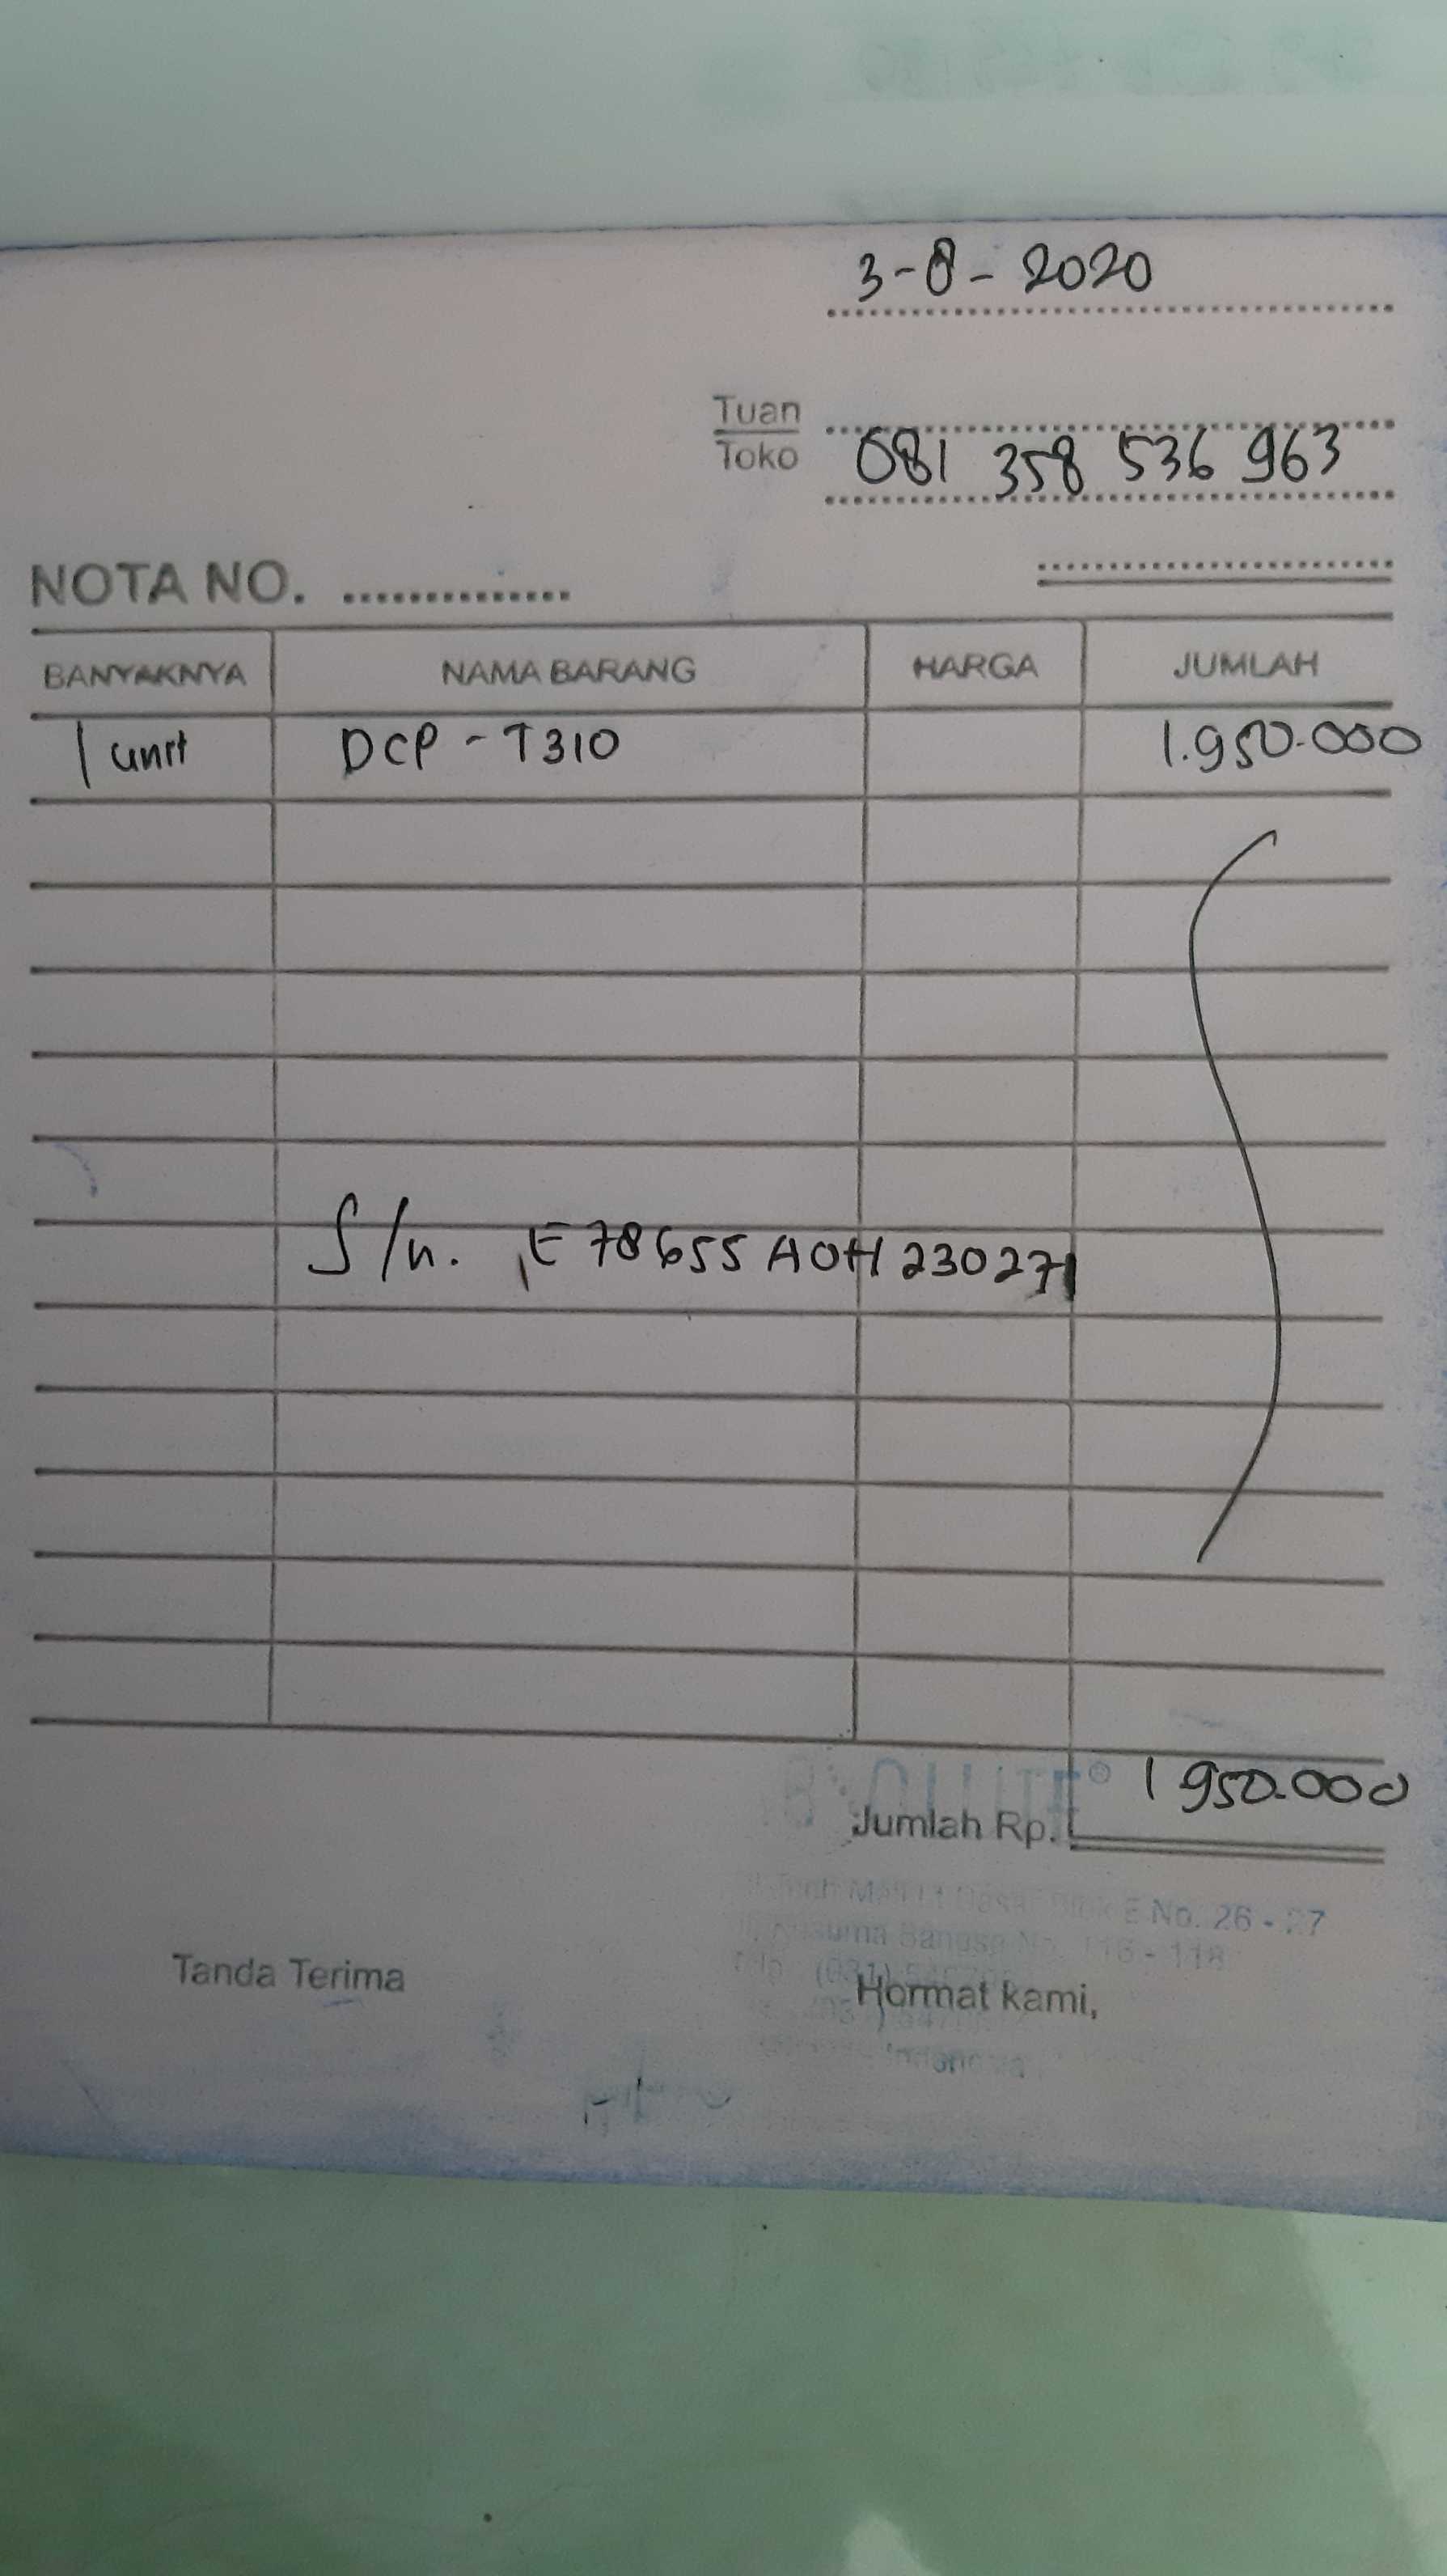 3-8-2020
Tuan
Toko
081 358 536 963
NOTA NO. ..............
BANYAKNYA NAMA BARANG HARGA JUMLAH
1 unit DCP-T310 1.950.000
S/n. E78655A0H230271
Jumlah Rp. 1950.000
No. 26 - 27
118
Tanda Terima Hormat kami,